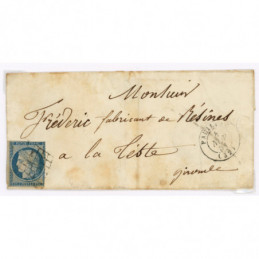 Monsieur
Frédéric fabricant de Résines
a la Teste
Gironde